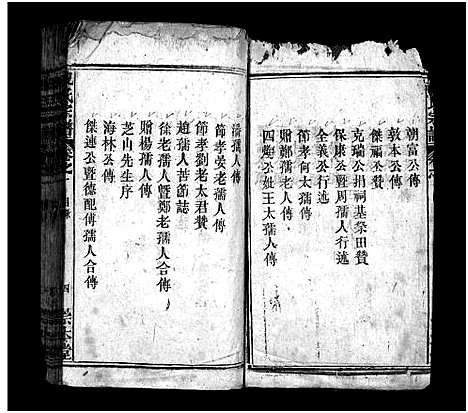 朝富公傳
敦本公傳
傑福公贊
克瑞公捐祠基祭田贊
保康公暨周孺人行述
全義公行述
節孝何太孺傳
贈鄭孺老人傳
四公妣王太孺人傳
潘孺人傳
節孝吳老孺人傳
節孝劉老太君贊
趙孺人苦節誌
徐老孺人暨鄭老孺人合傳
贈楊孺人傳
芝山先生序
海林公傳
傑連公暨德配傅孺人合傳
目錄
四